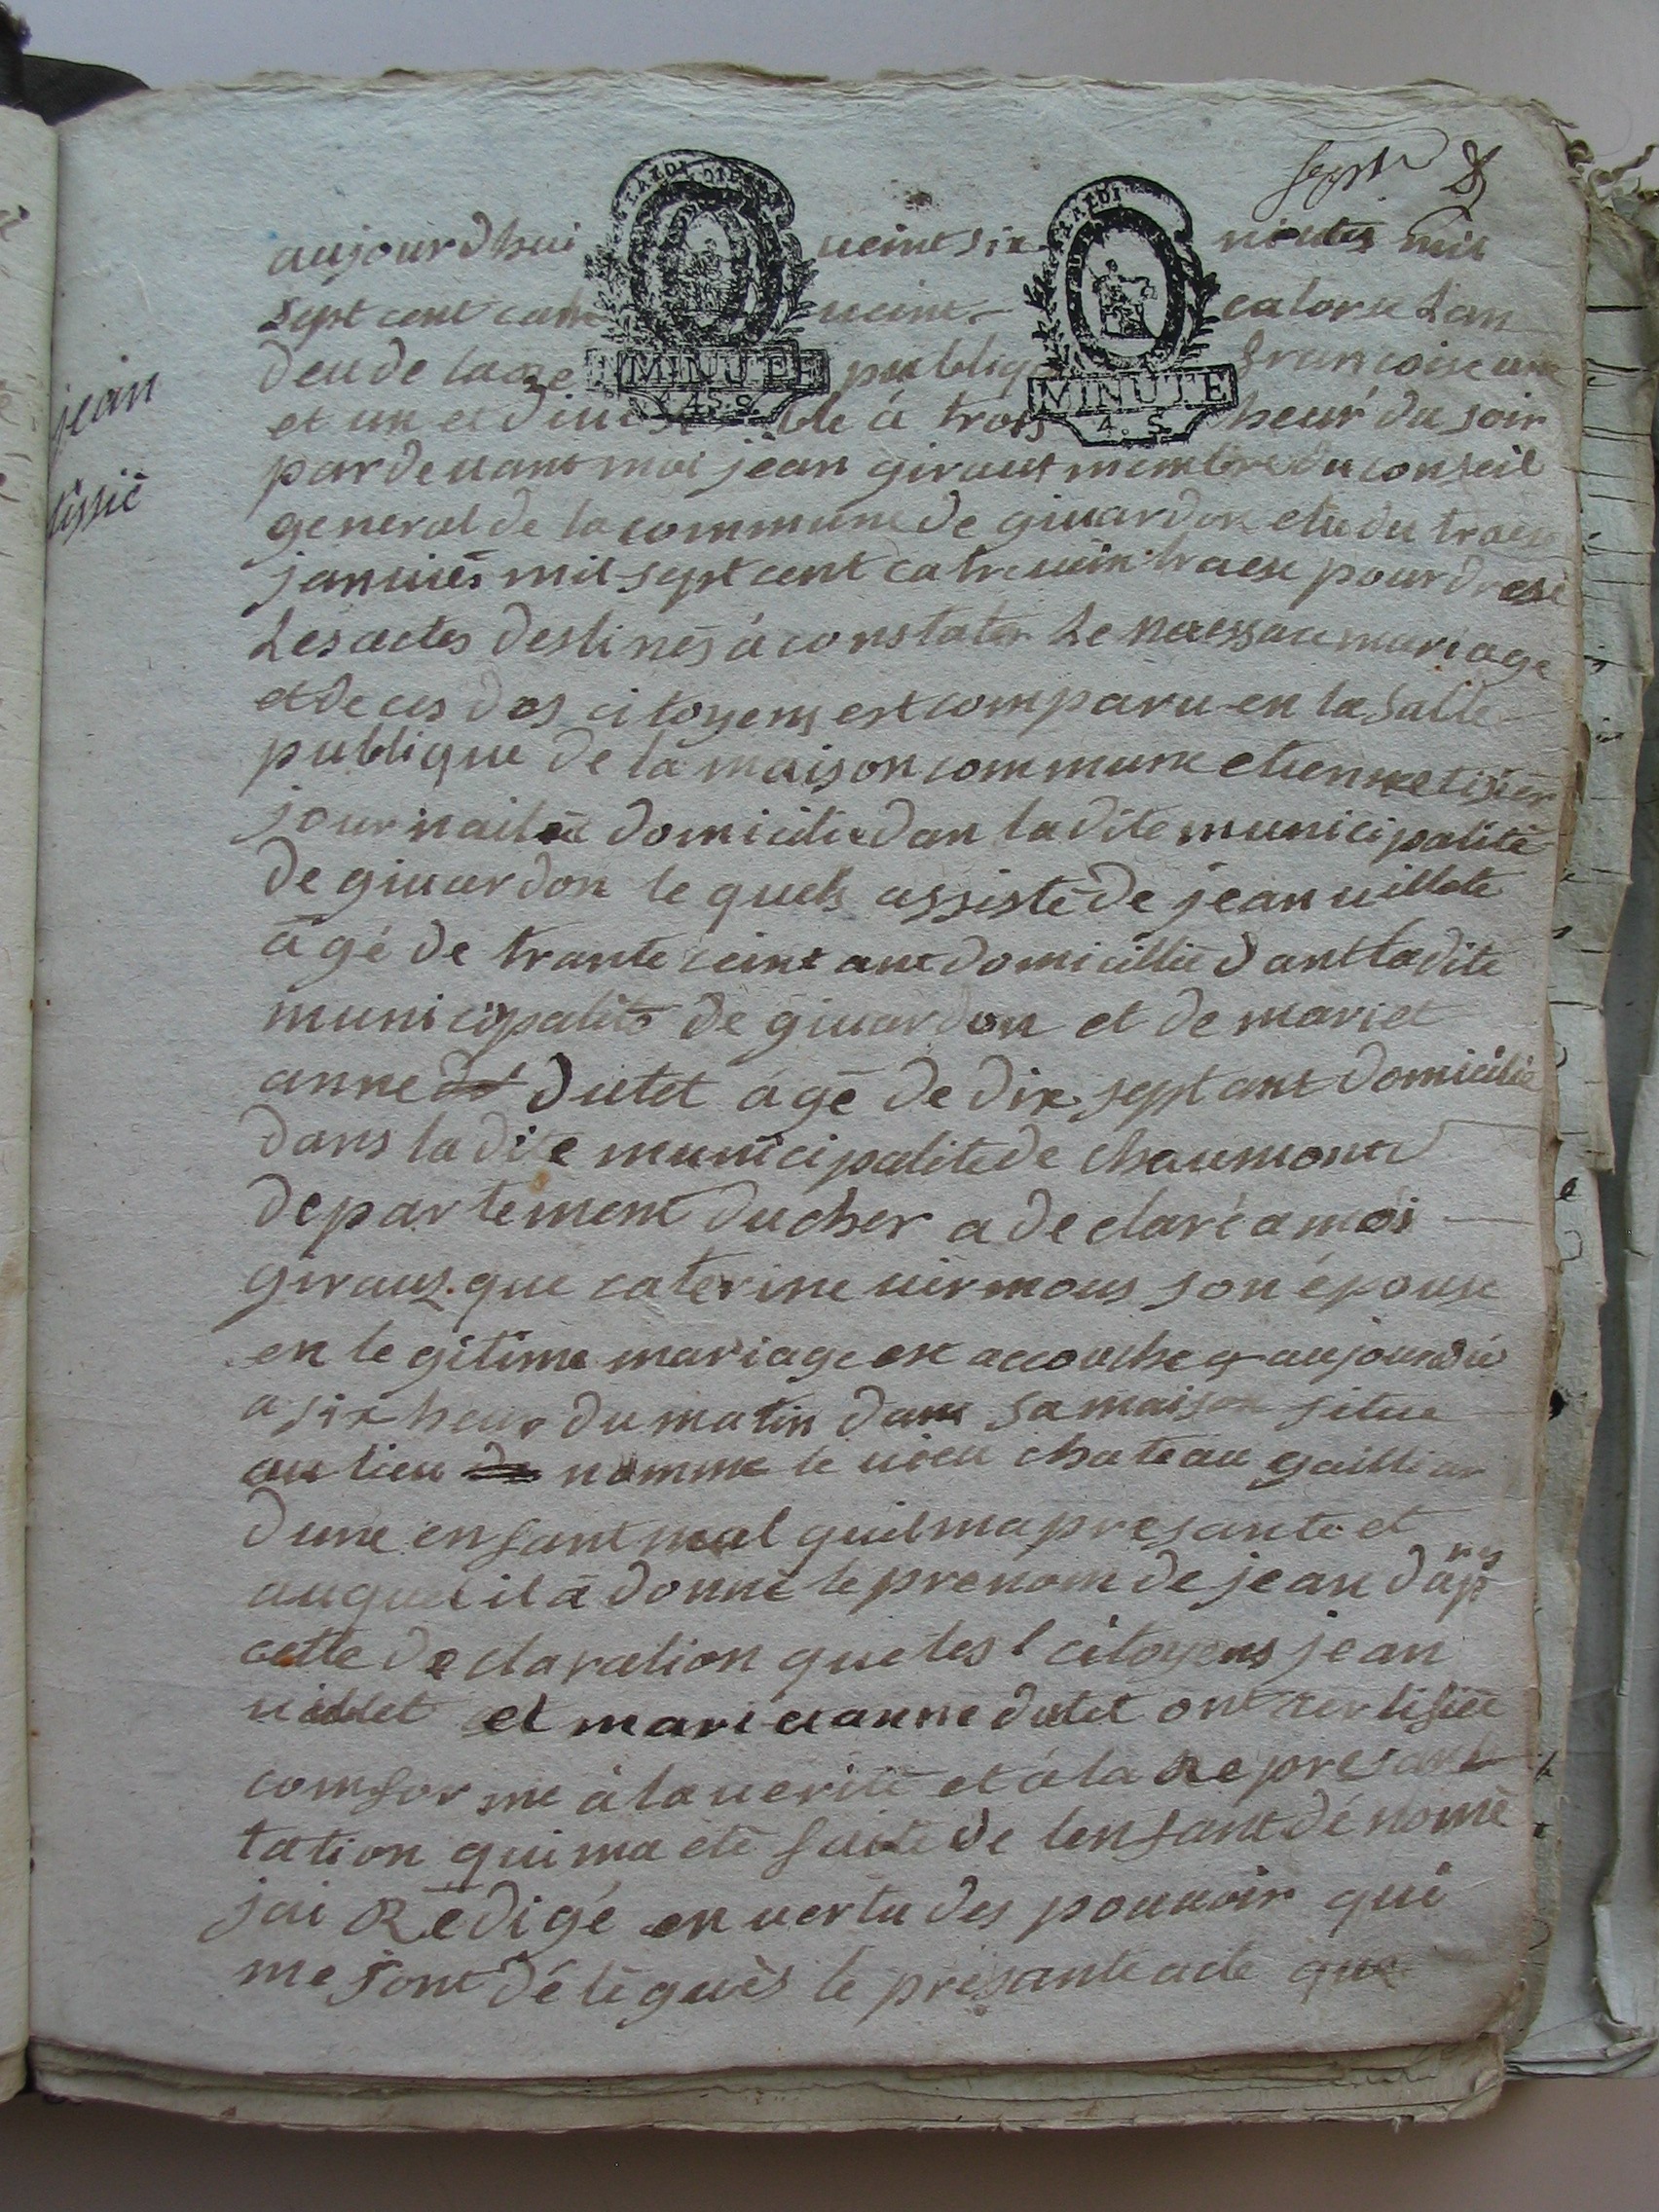 sept
aujourdhui ueint six nivites mil
sept cent catre ueint catorse Lan
deu de la Re publiq francoise une
et un et diuisible à trois heur du soir
jean
tissié
par deuant moi jean giraut membre du conseil
general de la commune de giuardon elu du traise
januiés mil sept cent catreuein traese pour dresé
Les actes destinés à constater Le naessace mariage
et deces des citoyens est comparu en la salle
publique de la maison commune etienne tisier
journailé domicilie dan la dite municipalité
de giuardon le quels assisté de jean uillete
âgé de trante ceint ant domicillié dant la dite
municipalité de giuardon et de mariet
anne dutet âgé de dix sept ant domicilié
dans la dite municipalité de chaumont
departement du cher a declaré a moi
giraux que caterine uirmous son épouse
en legitime mariage est accouche aujourdui
a six heur du matin dans sa maison situe
au lieu nomme le uieu chateau gailliar
dune ensant mal quil ma presante et
auquel il a donné le prenom de jean daprs
cette declaration que les citoyens jean
uillet et marieanne dutet ont certifiée
comforme à la uerité et à la Represant
tation qui ma eté faite de lenfant dénomé
jai Redigé en uertu des pouuoir qui
me sont délégués le présante acte que
MINUTE
4. S.
MINUTE
4. S.